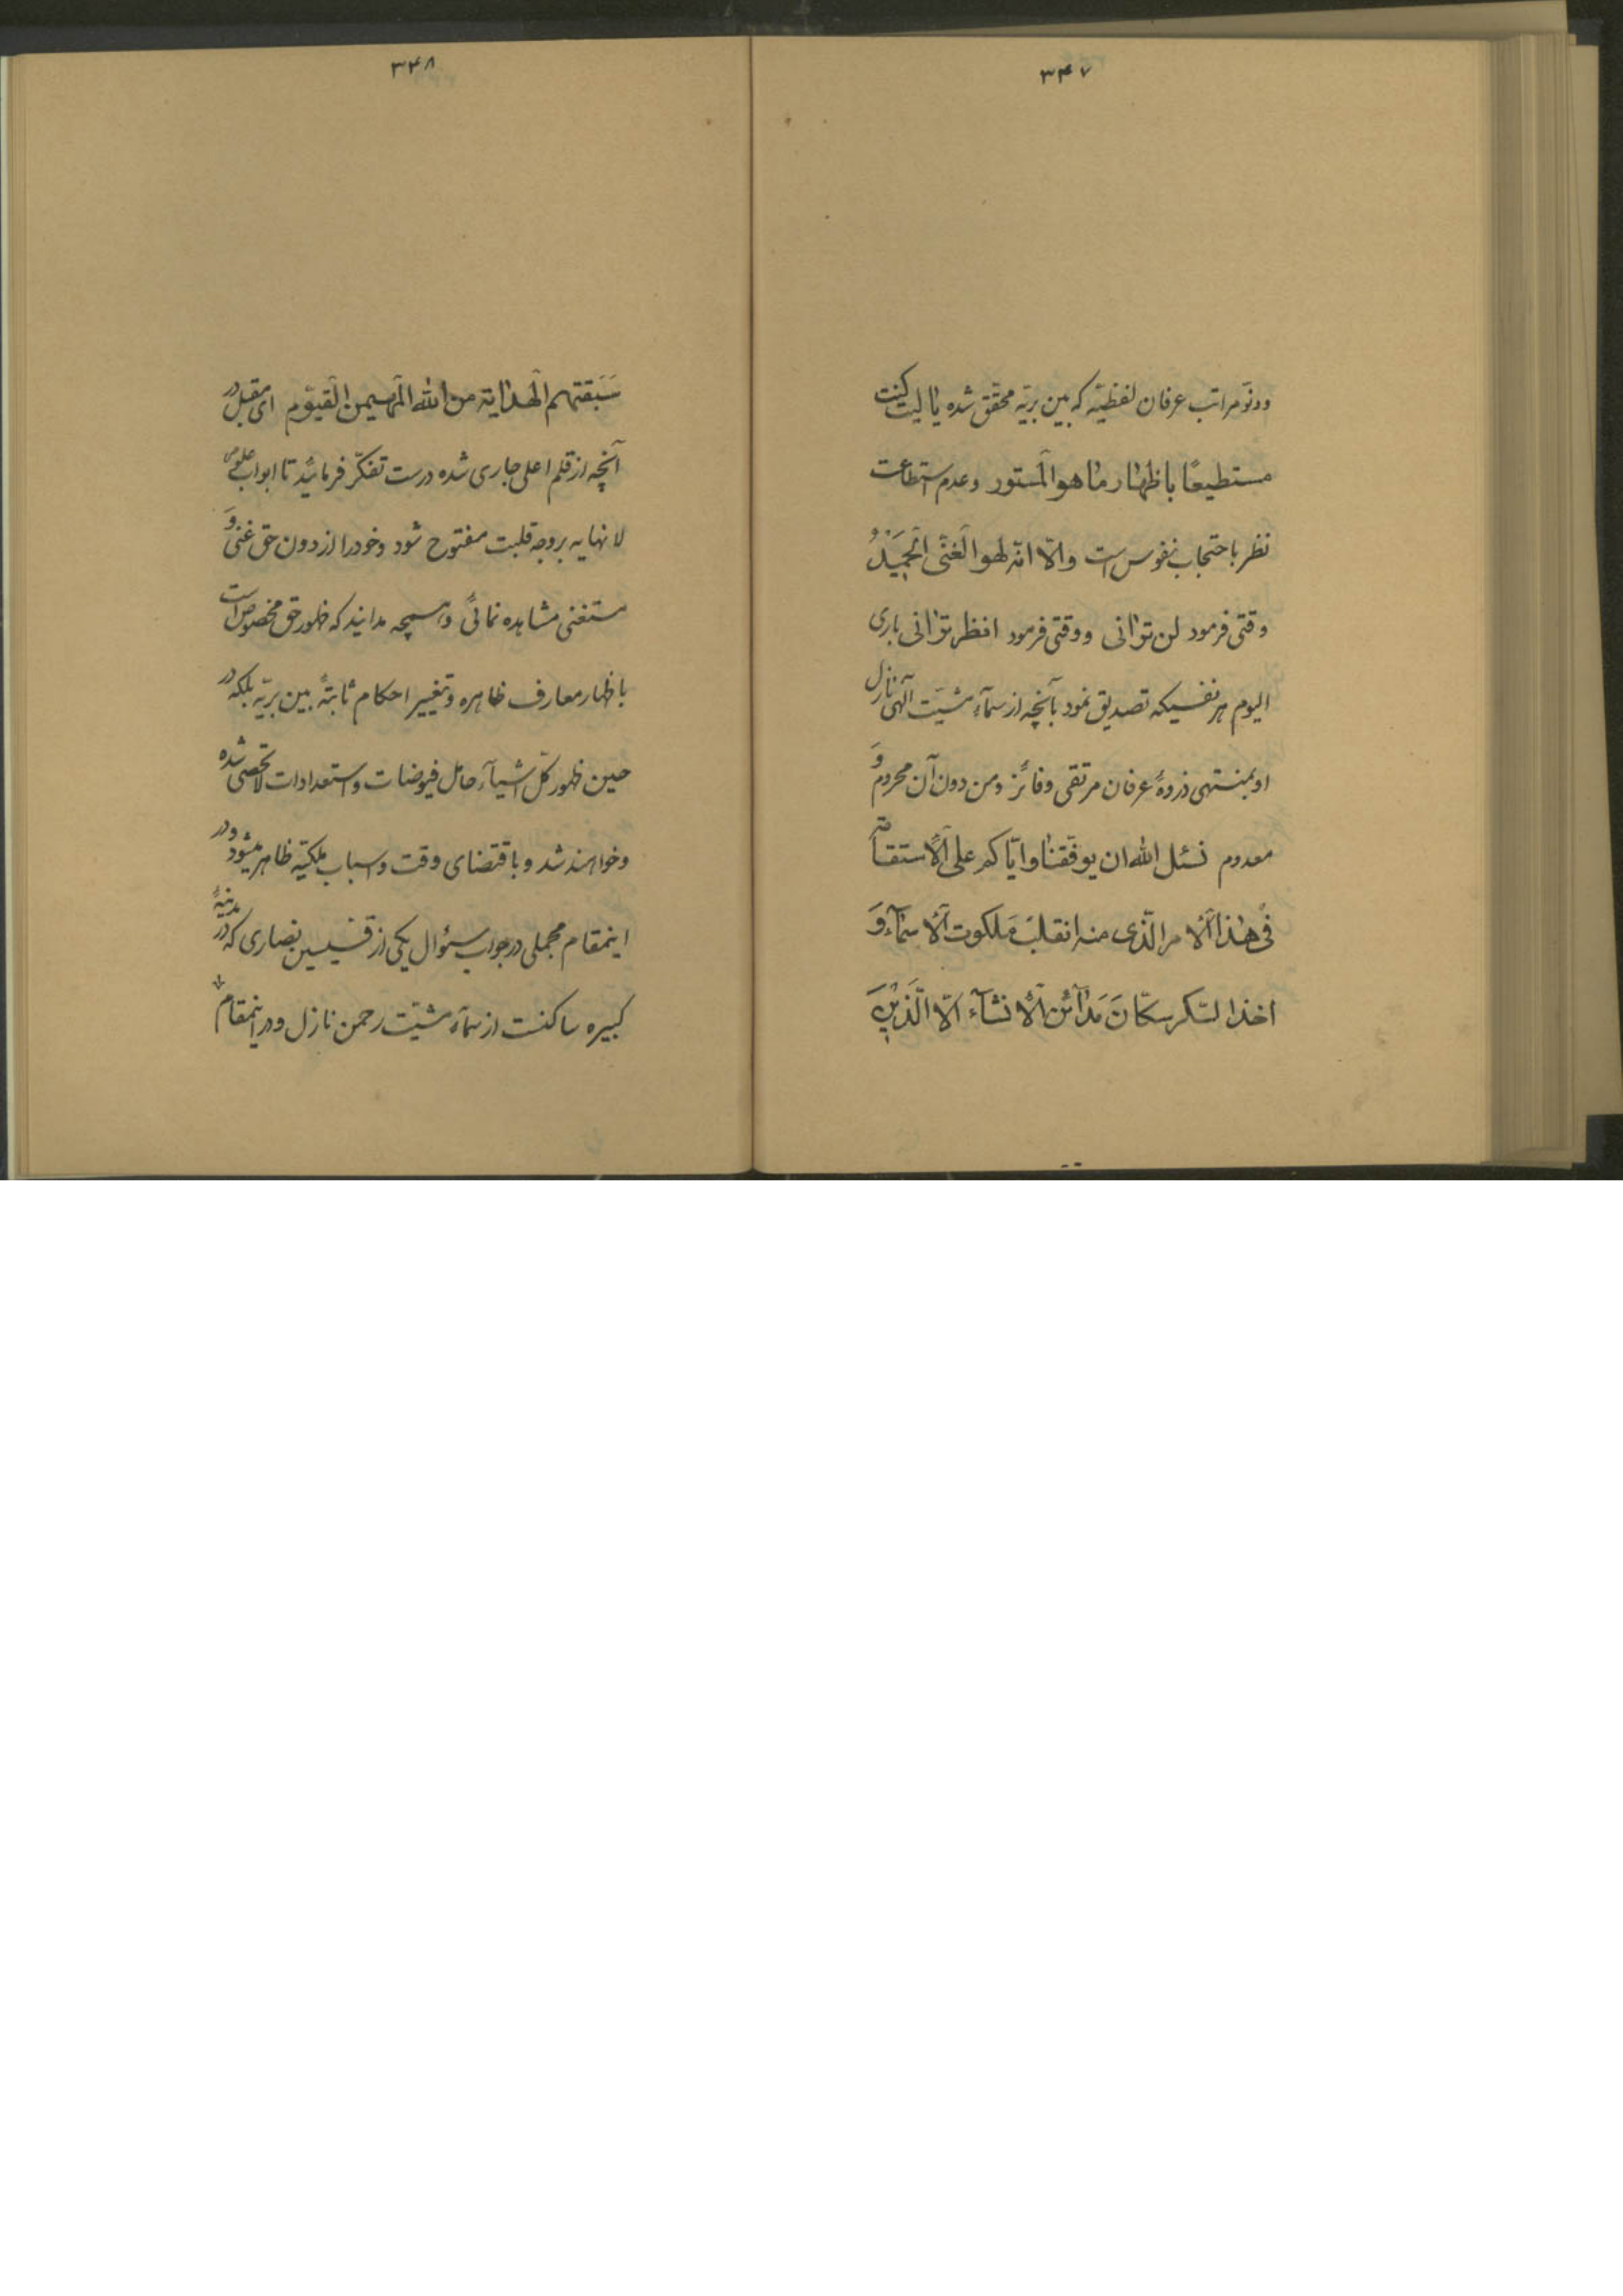 ۳۴۷
ودنوّ مراتب عرفان لفظیّه که بین بریّه محقق شده یا لیت کنت
مستطیعًا باظهار ما هو المستور وعدم استطاعت
نظر باحتجاب نفوس است والّا انّه لهو الغنّی الحمید
وقتی فرمود لن ترانی ووقتی فرمود انظر ترانی باری
الیوم هر نفسیکه تصدیق نمود بآنچه از سمآء مشیّت آلهی نازل
او بمنتهی ذروهٔ عرفان مرتقی وفائز ومن دون آن محروم وَ
معدوم نسئل الله ان یوفّقنا وایّاکم علی الاستقامة
فی هذا الامر الّذی منه انقلب ملکوت الاسمآء وَ
اخذ السّکر سکّانَ مَدآئن الانشآء الّا الّذینَ
۳۴۸
سَبَقتهم الهدایة من الله المهیمن القیّوم ای مقبل در
آنچه از قلم اعلی جاری شده درست تفکّر فرمائید تا ابواب علوم
لا نهایه بر وجه قلبت مفتوح شود وخود را از دون حق غنی وَ
مستغنی مشاهده نمائی وهمچه مدانید که ظهور حق مخصوص است
باظهار معارف ظاهره وتغییر احکام ثابتهٔ بین بریّه بلکه در
حین ظهور کلّ اشیآء حامل فیوضات واستعدادات لا تحصی شده
وخواهند شد و باقتضای وقت واسباب ملکیّه ظاهر میشود ودر
اینمقام مجملی در جواب سئوال یکی از قسّیسین نصاری که در مدینهٔ
کبیره ساکنست از سمآء مشیّت رحمن نازل ودر اینمقام